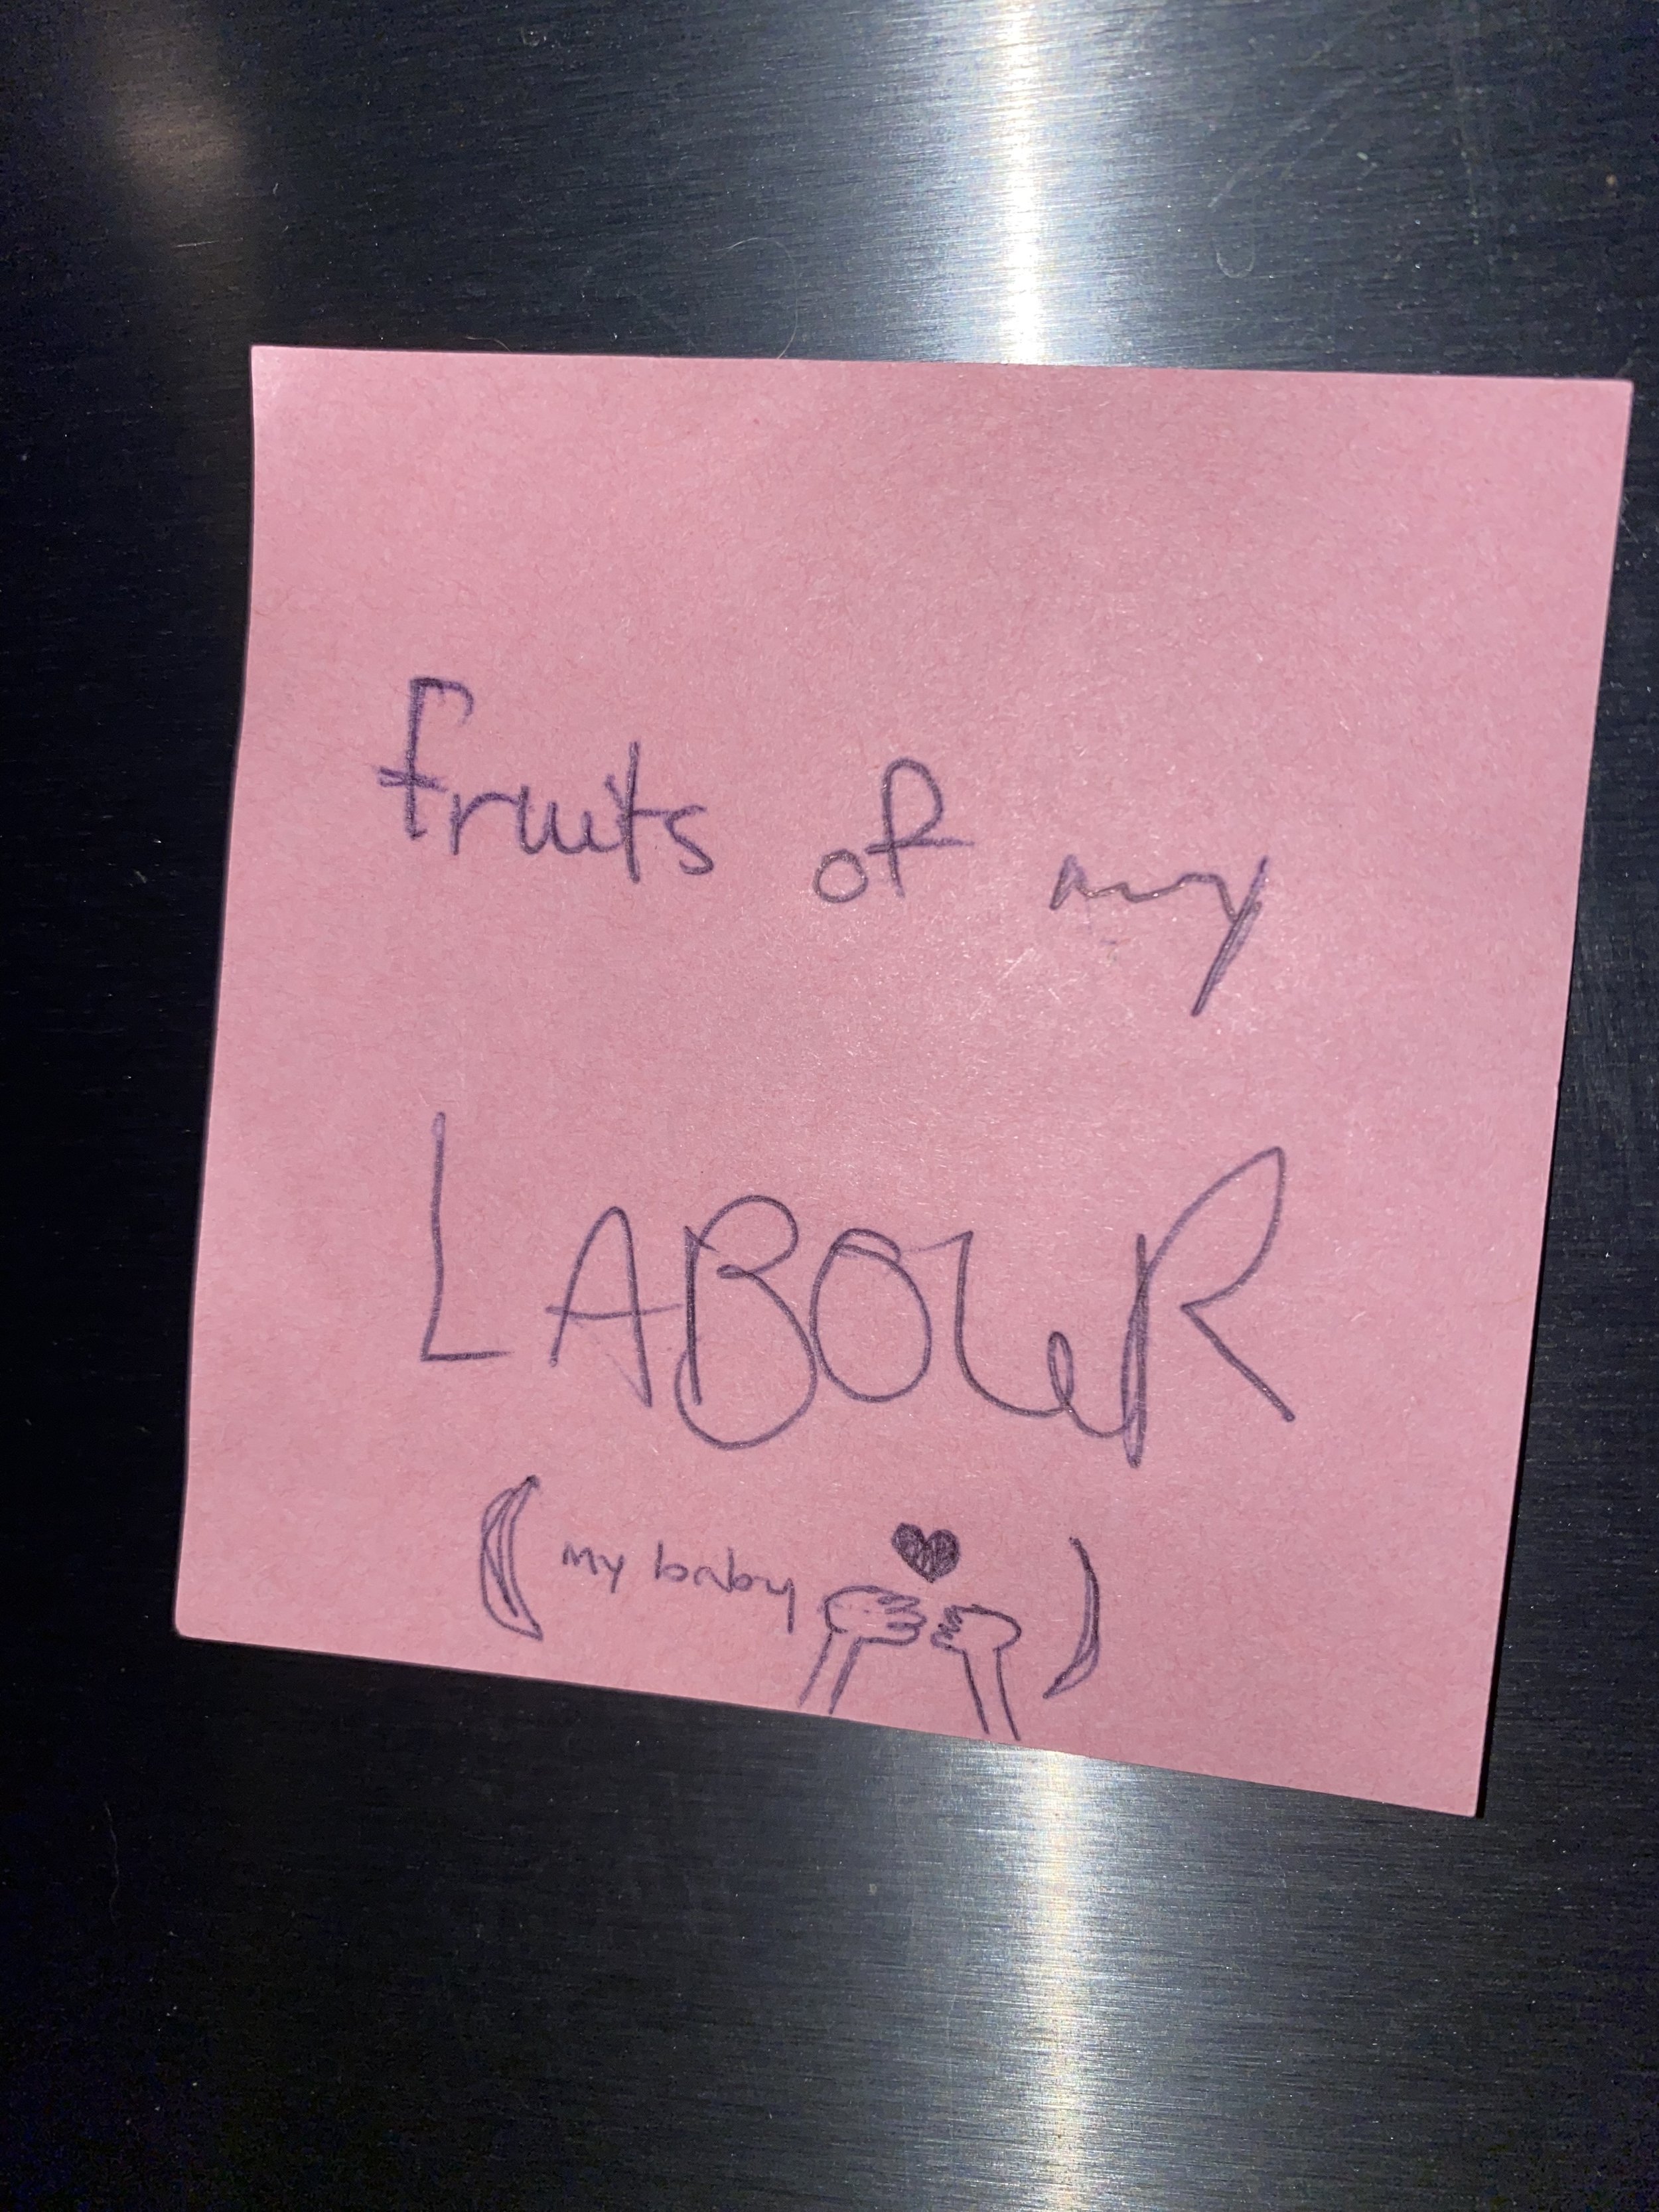 fruits of my
LABOUR
(my baby )